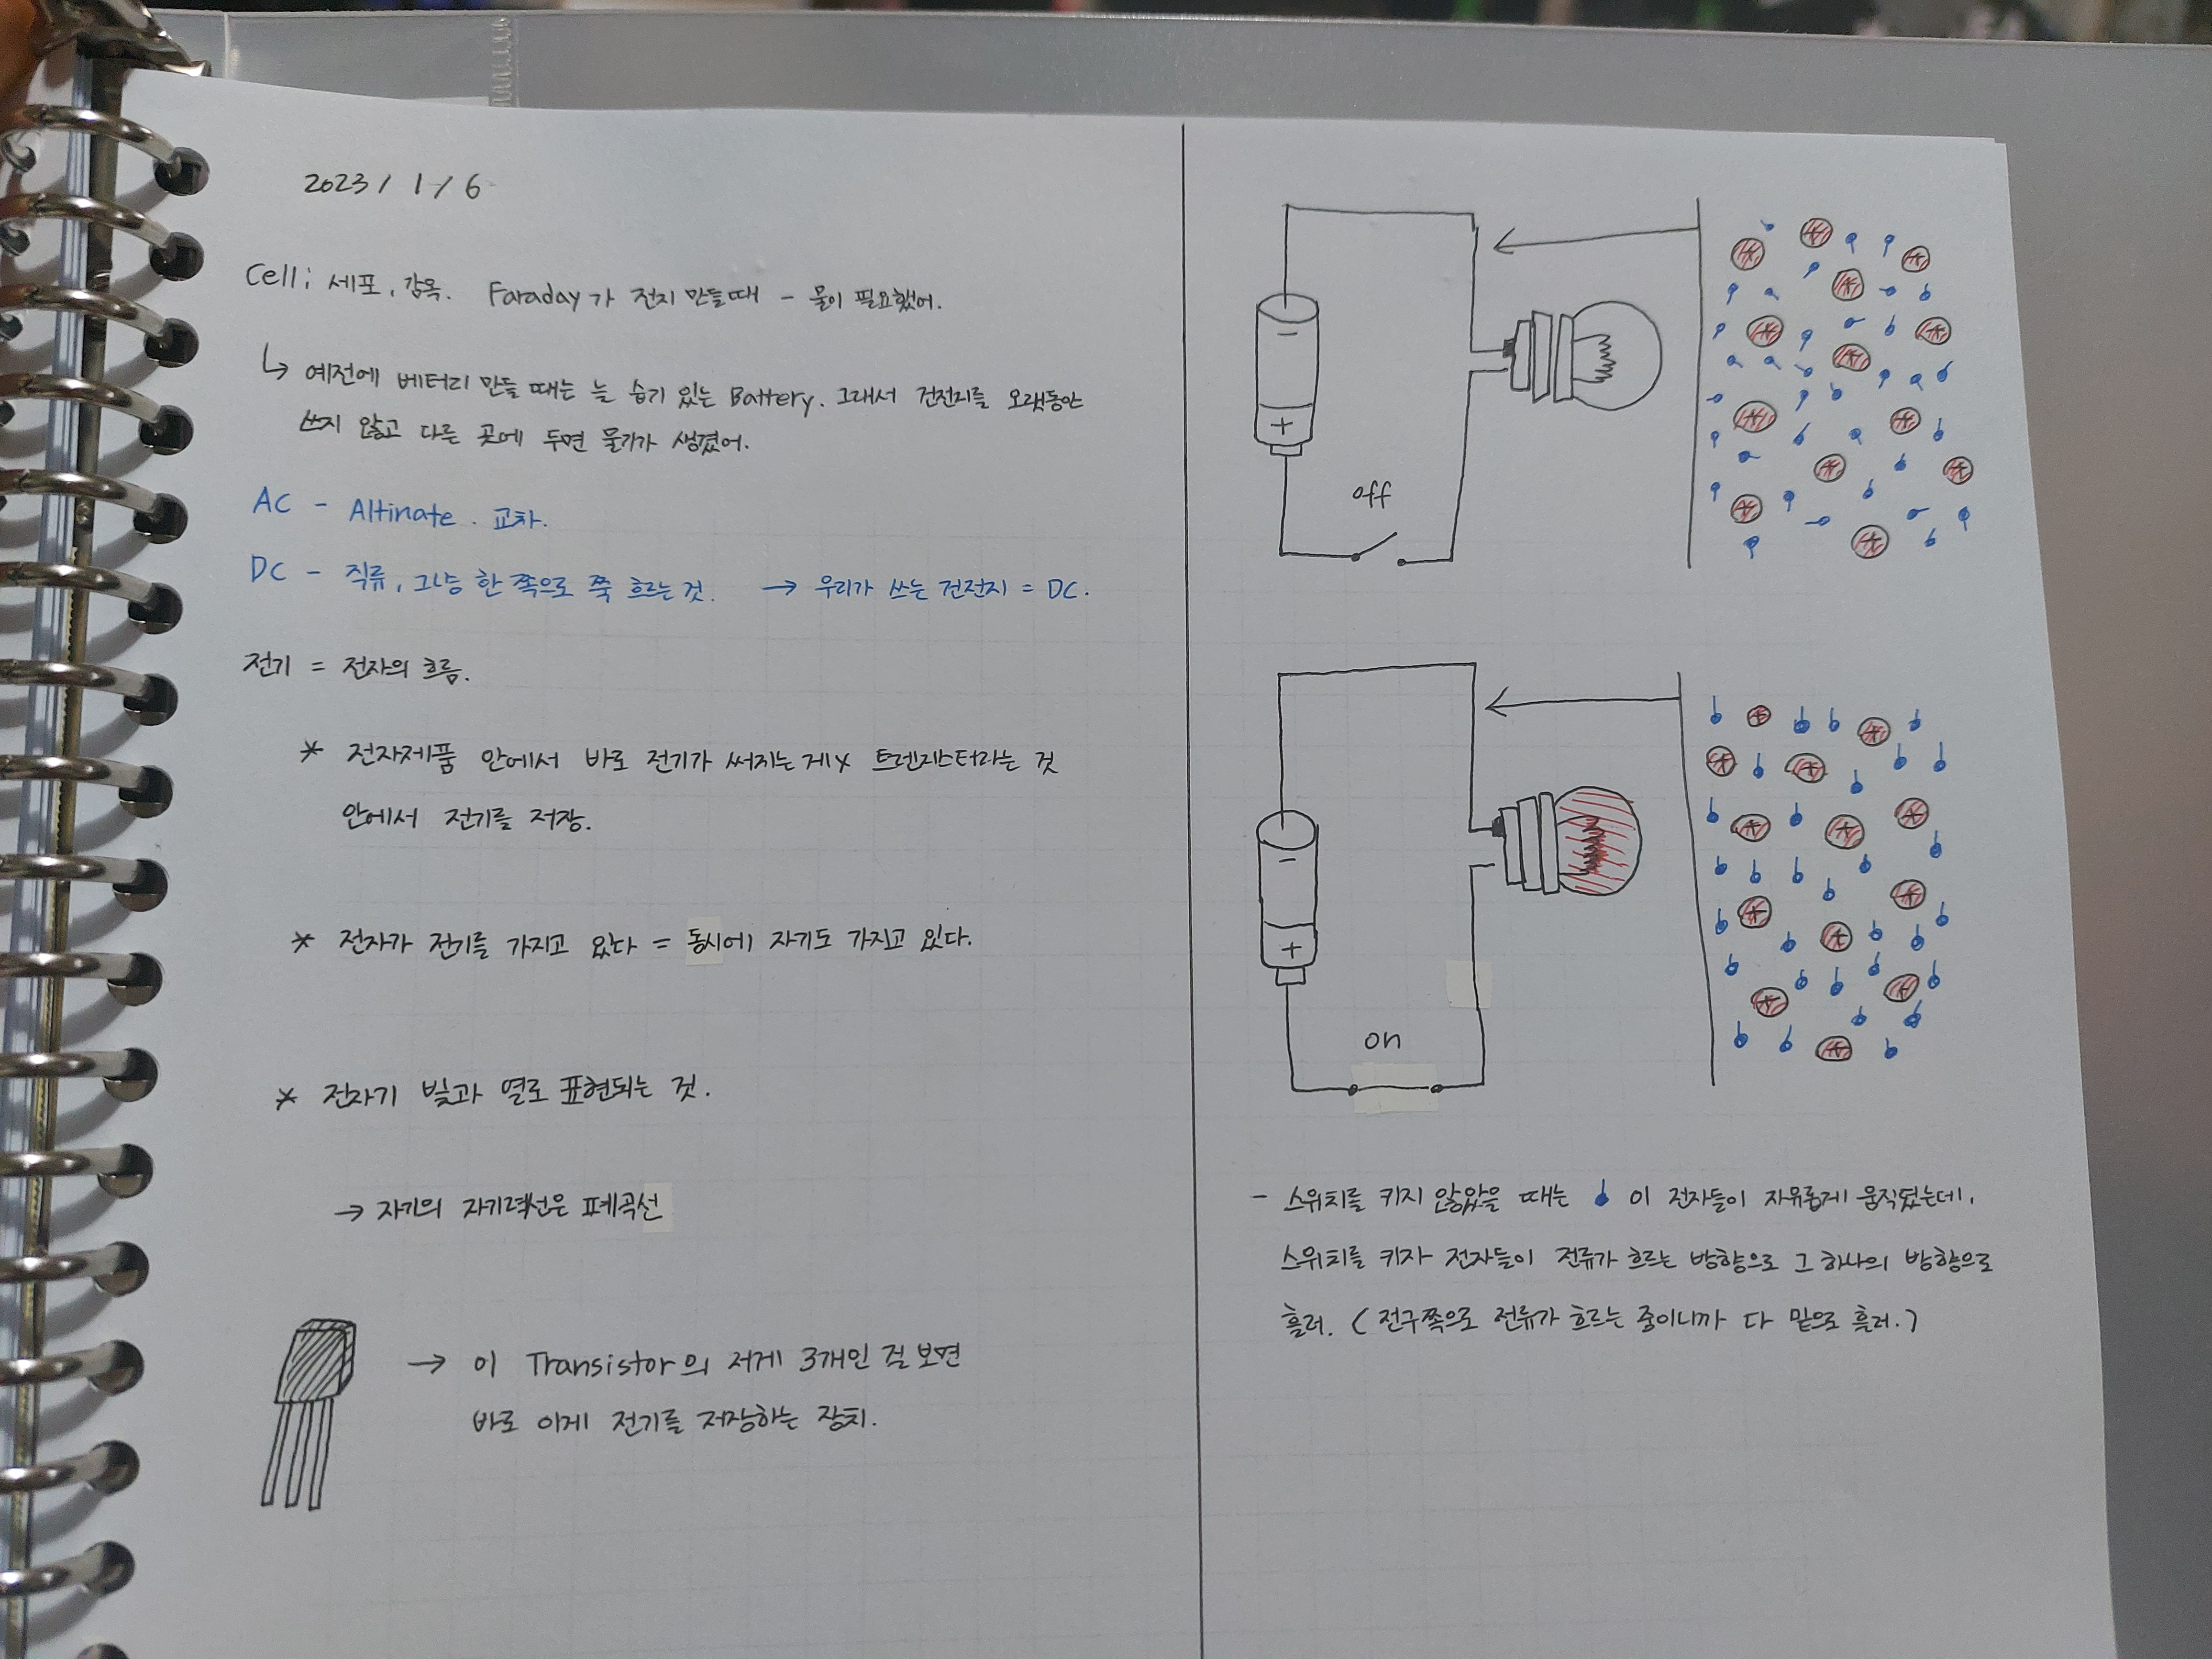 2023 / 1 / 6
Cell; 세포, 감옥. Faraday가 전지 만들때 - 물이 필요했어.
↳ 예전에 베터리 만들 때는 늘 습기 있는 Battery. 그래서 건전지를 오랫동안
쓰지 않고 다른 곳에 두면 물기가 생겼어.
AC - Altinate. 교차.
DC - 직류, 그냥 한 쪽으로 쭉 흐르는 것. → 우리가 쓰는 건전지 = DC.
전기 = 전자의 흐름.
* 전자제품 안에서 바로 전기가 써지는 게 x 트렌지스터라는 것
안에서 전기를 저장.
* 전자가 전기를 가지고 있다 = 동시에 자기도 가지고 있다.
* 전자기 빛과 열로 표현되는 것.
→ 자기의 자기력선은 폐곡선
→ 이 Transistor의 저게 3개인 걸 보면
바로 이게 전기를 저장하는 장치.
-
+
off
-
+
on
- 스위치를 키지 않았을 때는 이 전자들이 자유롭게 움직였는데,
스위치를 키자 전자들이 전류가 흐르는 방향으로 그 하나의 방향으로
흘러. (전구쪽으로 전류가 흐르는 중이니까 다 밑으로 흘러.)